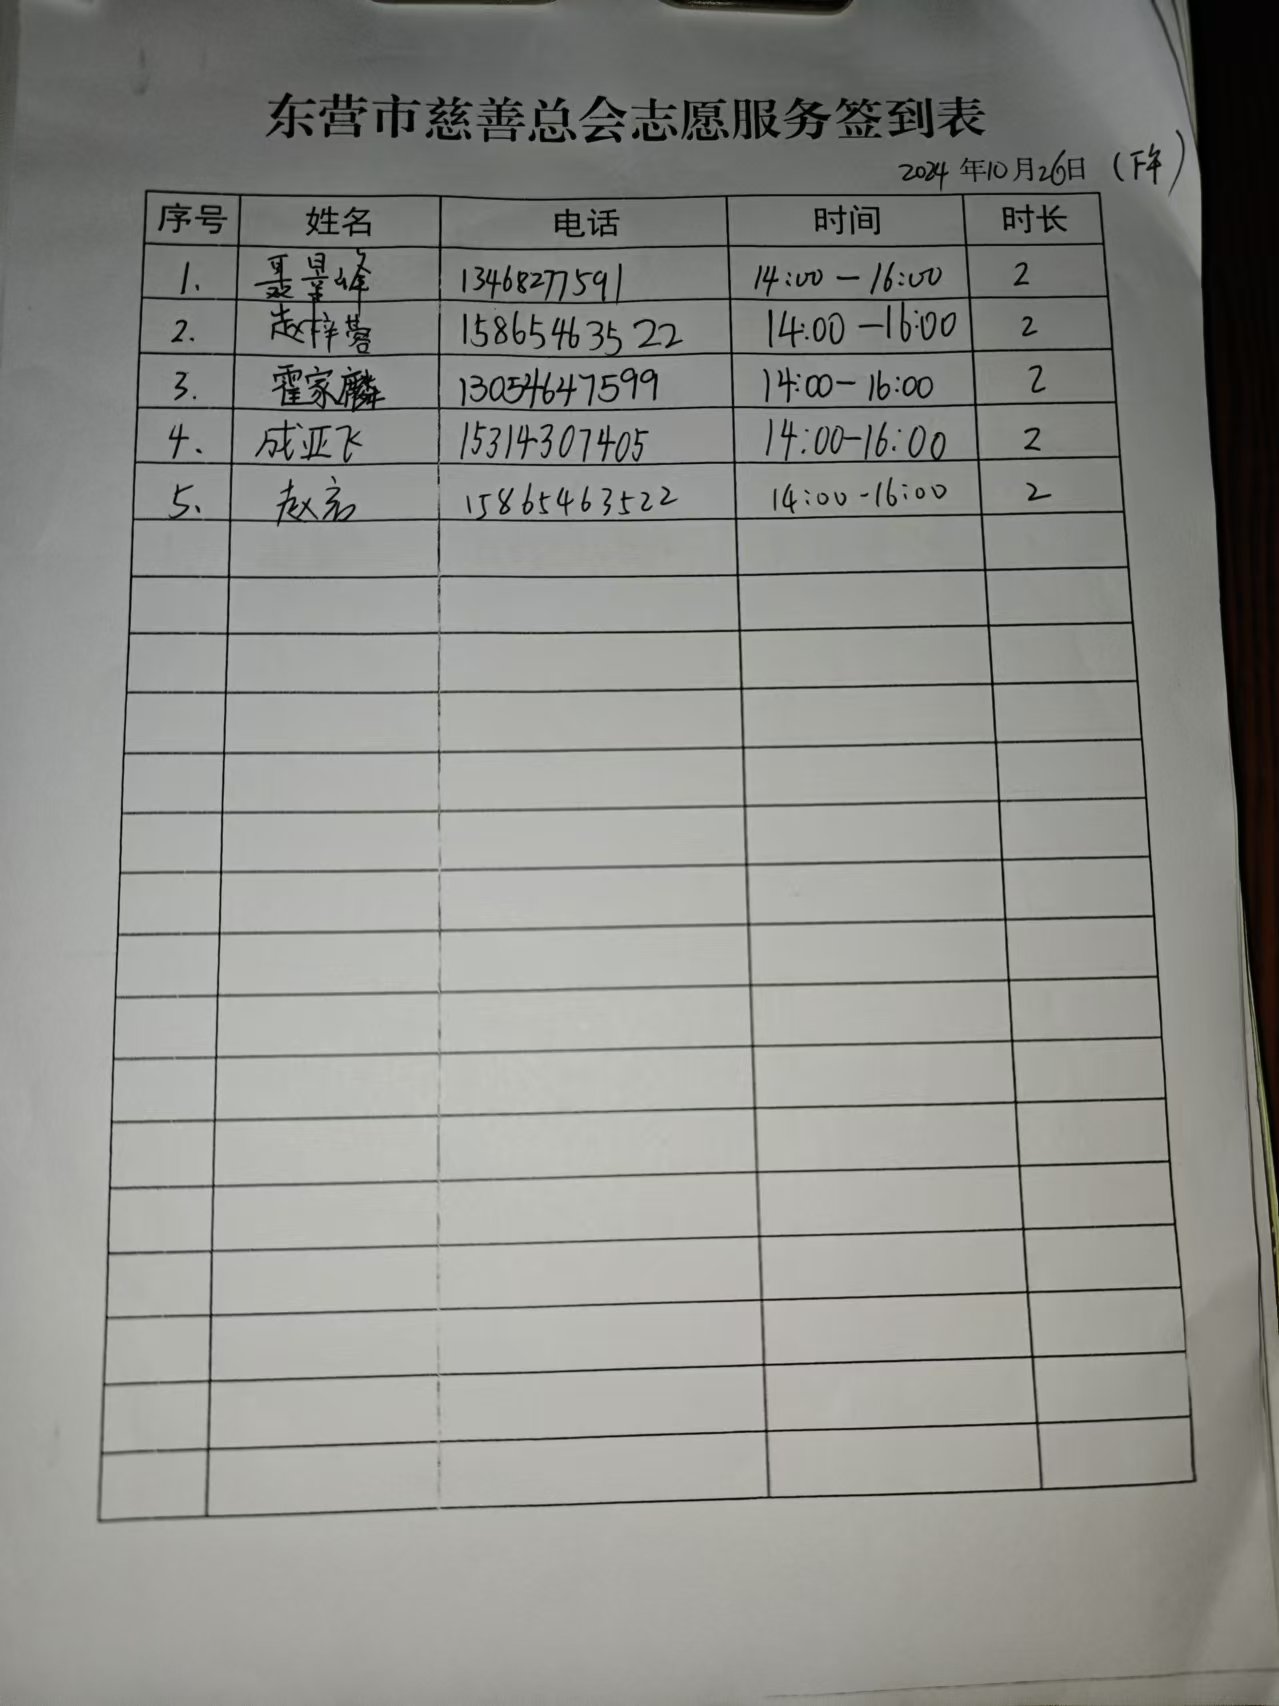 东营市慈善总会志愿服务签到表
2024 年10月26日 (下午)
序号 姓名 电话 时间 时长
1. 聂景峰 13468277591 14:00-16:00 2
2. 赵梓蓉 15865463522 14:00-16:00 2
3. 霍家麟 13054647599 14:00-16:00 2
4. 成亚飞 15314307405 14:00-16:00 2
5. 赵宏 15865463522 14:00-16:00 2